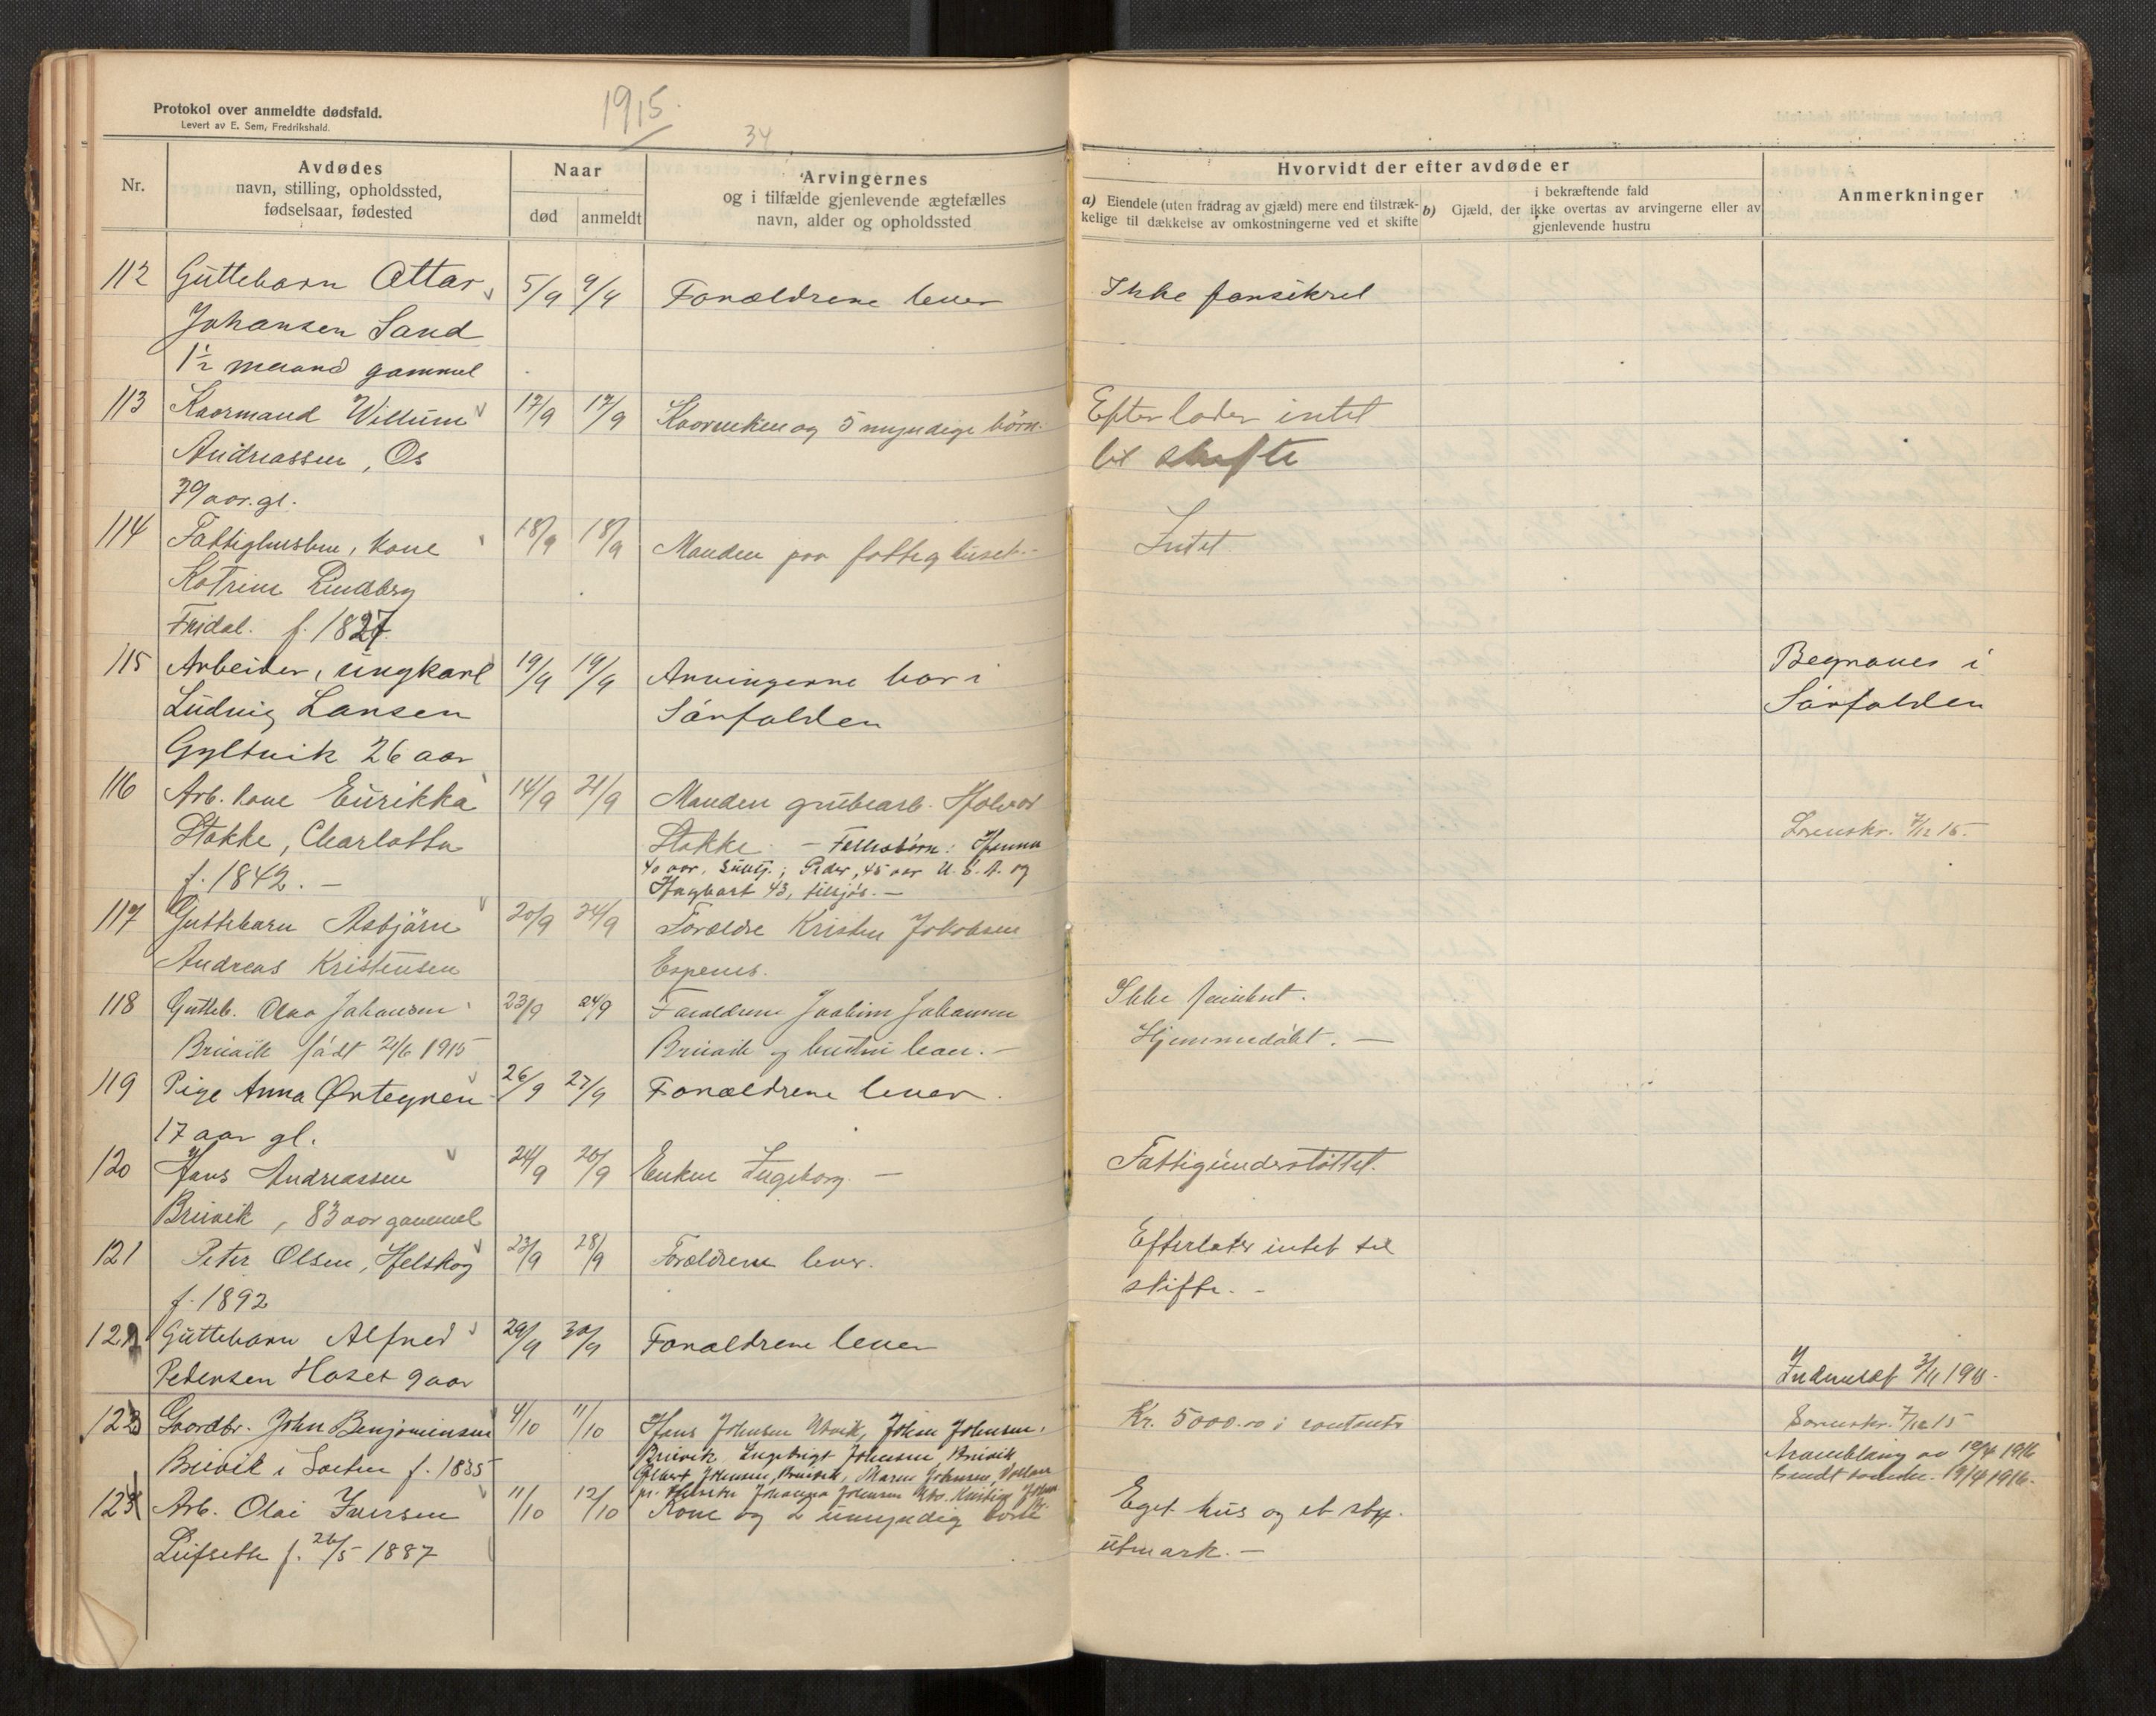 Protokol over anmeldte dødsfald.
Levert av E. Sem, Fredrikshald.
1915.
34
Nr.
Avdødes
navn, stilling, opholdssted,
fødselsaar, fødested
Naar
død anmeldt
Arvingernes
og i tilfælde gjenlevende ægtefælles
navn, alder og opholdssted
Hvorvidt der efter avdøde er
a) Eiendele (uten fradrag av gjæld) mere end tilstræk-
kelige til dækkelse av omkostningerne ved et skifte
i bekræftende fald
b) Gjæld, der ikke overtas av arvingerne eller av
gjenlevende hustru
Anmerkninger
112 Guttebarn Ottar 5/9 9/9 Forældrene lever Ikke forsikret
Johansen Sand
1½ maand gammel
113 Kaarmand Willum 17/9 17/9 Kaarenken og 5 myndige börn. Efterlader intet
Andreassen, Os til skifte
79 aar. gl.
114 Fattighuslem, kone 18/9 18/9 Manden paa fattighuset.- Intet
Katrine Lindberg
Fridal. f. 1827
115 Arbeider, ungkarl 19/9 19/9 Arvingerne bor i Begraves i
Ludvig Larsen Sörfolden Sörfolden
Gyltvik 26 aar
116 Arb. kone Eurikka 14/9 21/9 Manden grubearb. Halvor
Stokke, Charlotta Stokke. - Fellesbörn: Hanna Lorenskr. 7/12 15.
f. 1842. - 40 aar, Sulitj.; Peder, 45 aar U.S.A. og
Hagbart 43, tilsjös. -
117 Guttebarn Asbjörn 20/9 24/9 Forældre Kristen Jakobsen
Andreas Kristensen Espenes.
118 Gutteb. Olav Johansen 23/9 24/9 Forældrene Joakim Johansen Ikke
Bruvik född 21/6 1915 Bruvik og hustru lever. - Hjemmedöbt. -
119 Pige Anna Örtegren 26/9 27/9 Forældrene lever.
17 aar gl.
120 Hans Andreassen 24/9 26/9 Enken Ingeborg. - Fattigunderstöttet.
Bruvik, 83 aar gammel
121 Peter Olsen, Helskog 23/9 28/9 Forældrene lever. Efterlater intet til
f. 1892 skifte. -
122 Guttebarn Alfred 29/9 30/9 Forældrene lever
Pedersen Hoset 9 aar
123 Gaardbr. John Benjaminsen 4/10 11/10 Hans Johnsen Utvik, Johan Johnsen, Kr. 5000.00 i contanter 7/12 15
Bruvik i f. 1835 Bruvik, Ingebrigt Johnsen, Bruvik 12/4 1916
Albert Johnsen, Bruvik, Maren Johnsen, 19/4 1916.
Johanna Johnsen
124 Arb. Olai Iversen 11/10 12/10 Kone og 2 umyndig Eget hus og et stk.
Leifsett f. 26/5 1887 utmark. -